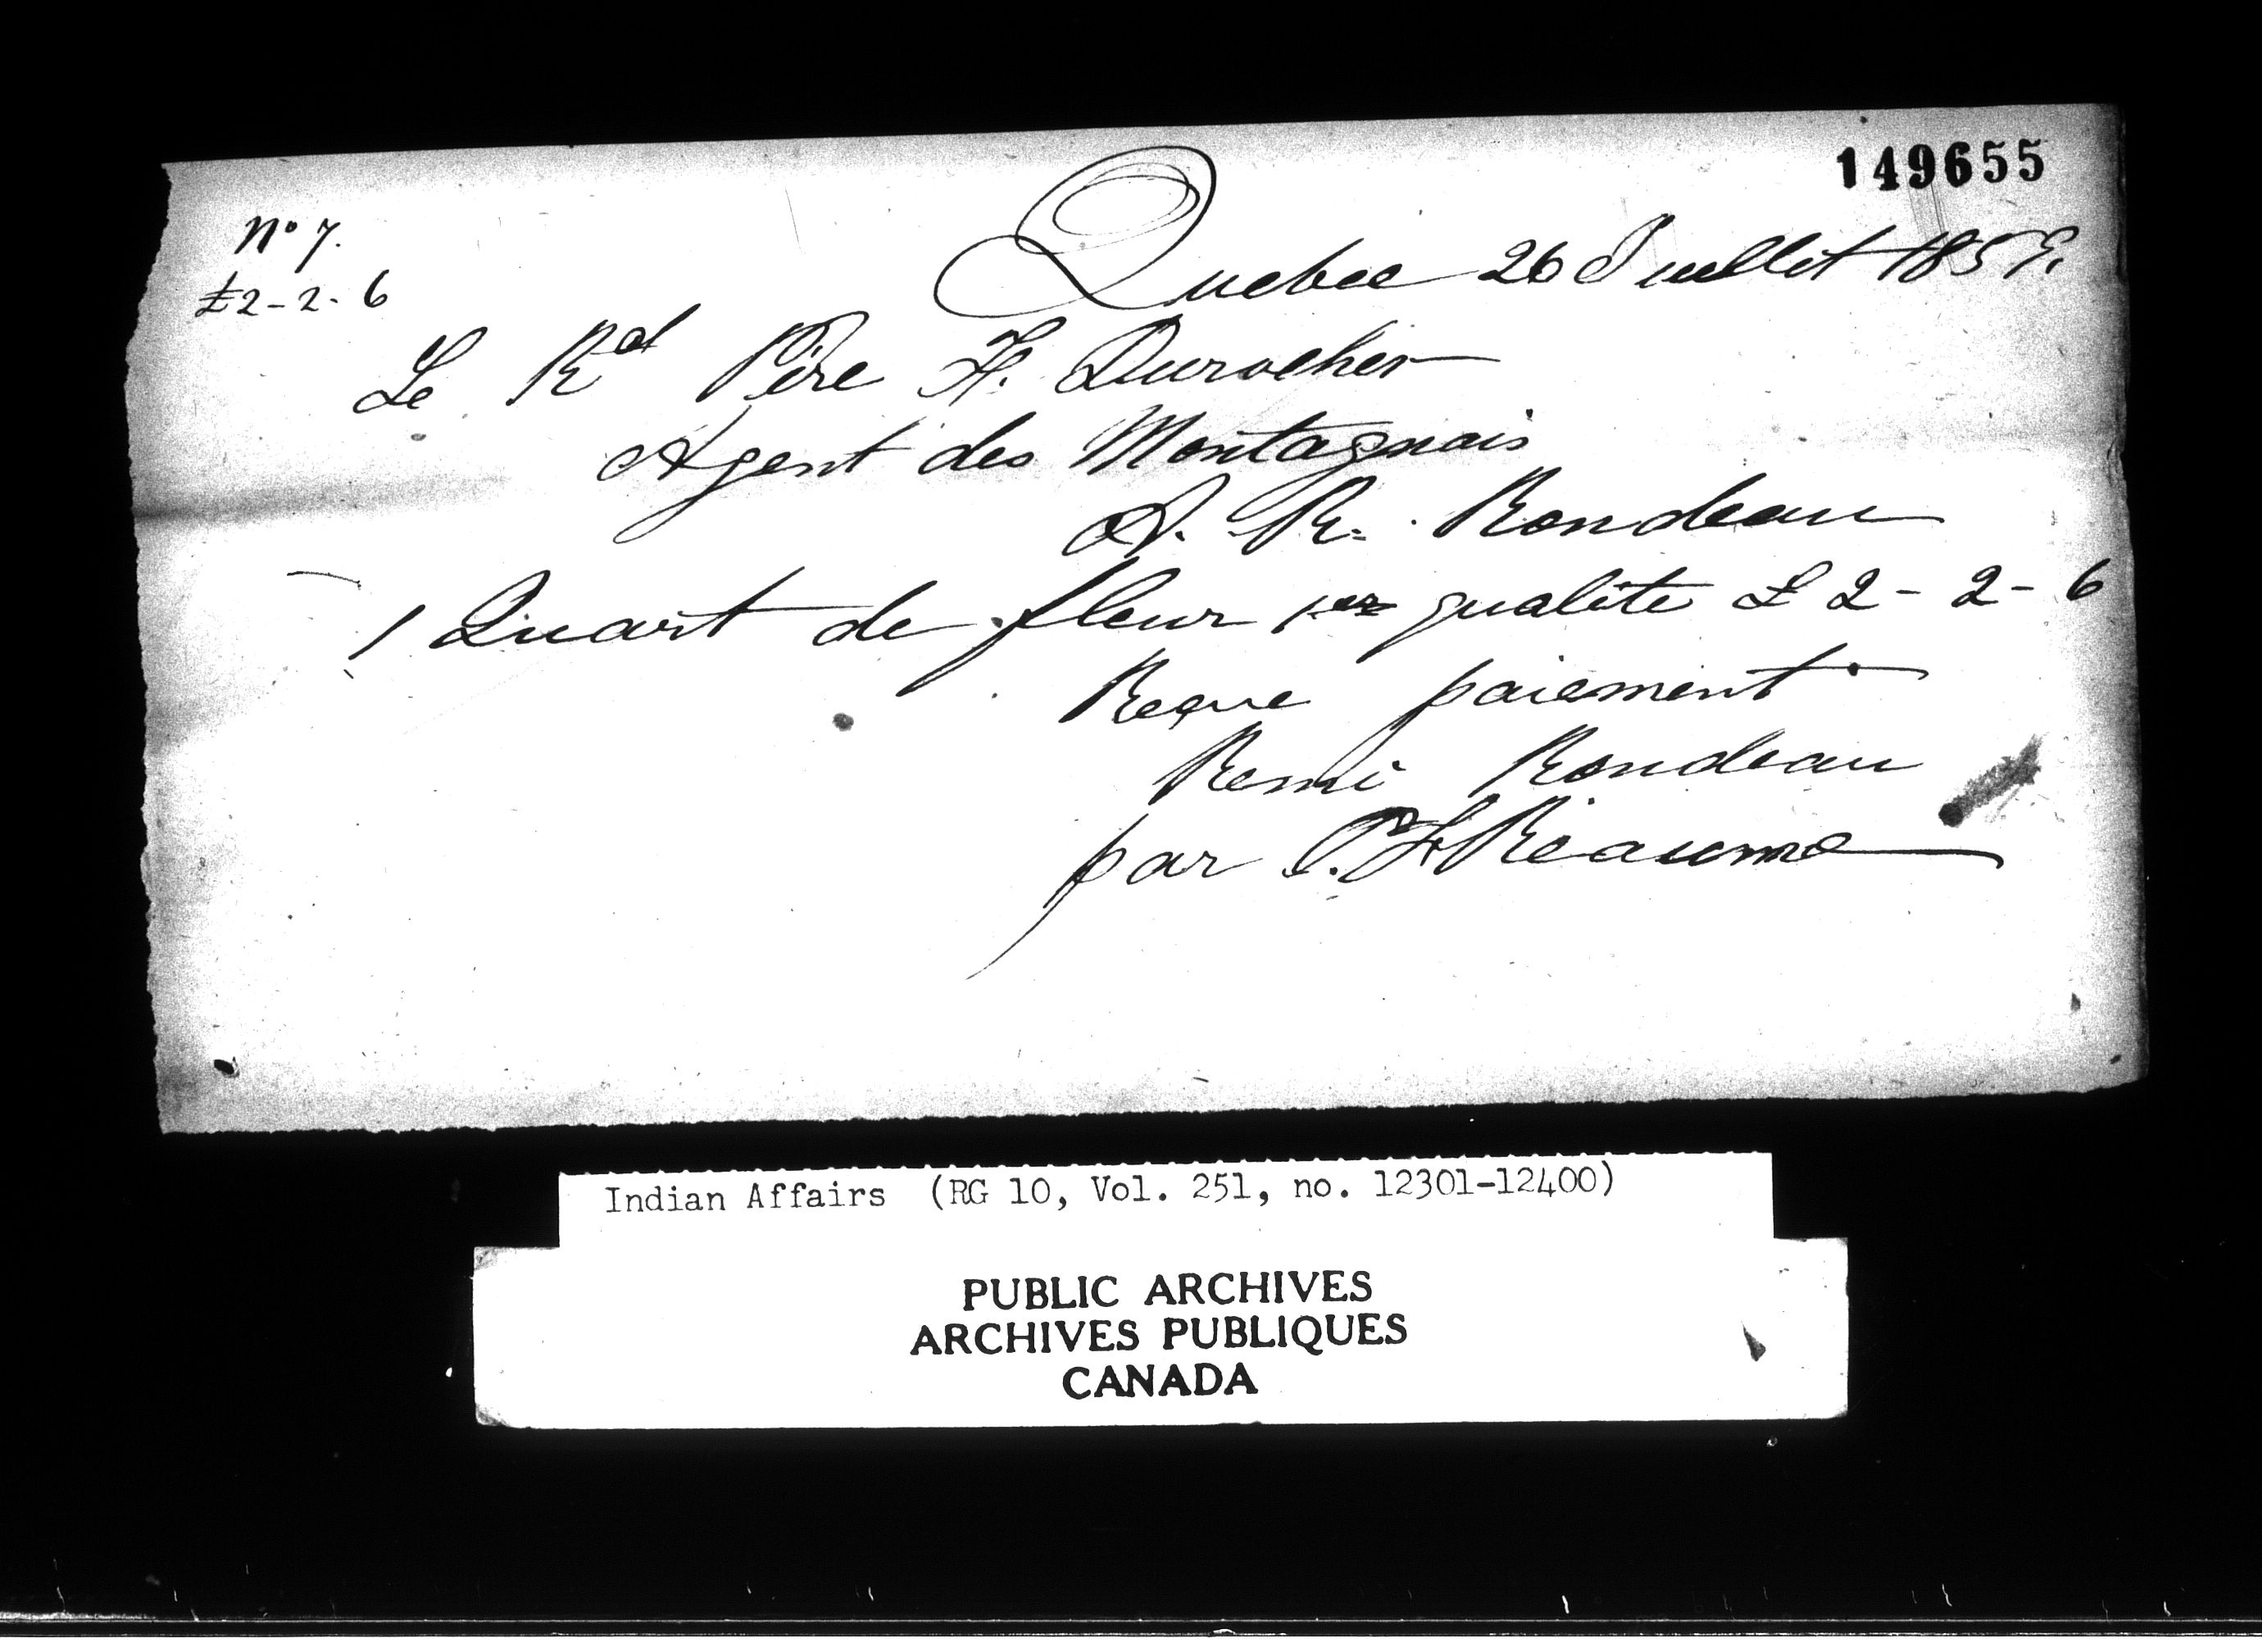 149655
No 7.
£2-2-6
Quebec 26 Juillet 1859.
Le Rd Père F. Durocher
Agent des Montagnais
A. R. Rondeau
1 Quart de fleur 1er qualite £ 2-2-6
Reçue paiement
Remi Rondeau
par Reaume
Indian Affairs (RG 10, Vol. 251, no. 12301-12400)
PUBLIC ARCHIVES
ARCHIVES PUBLIQUES
CANADA